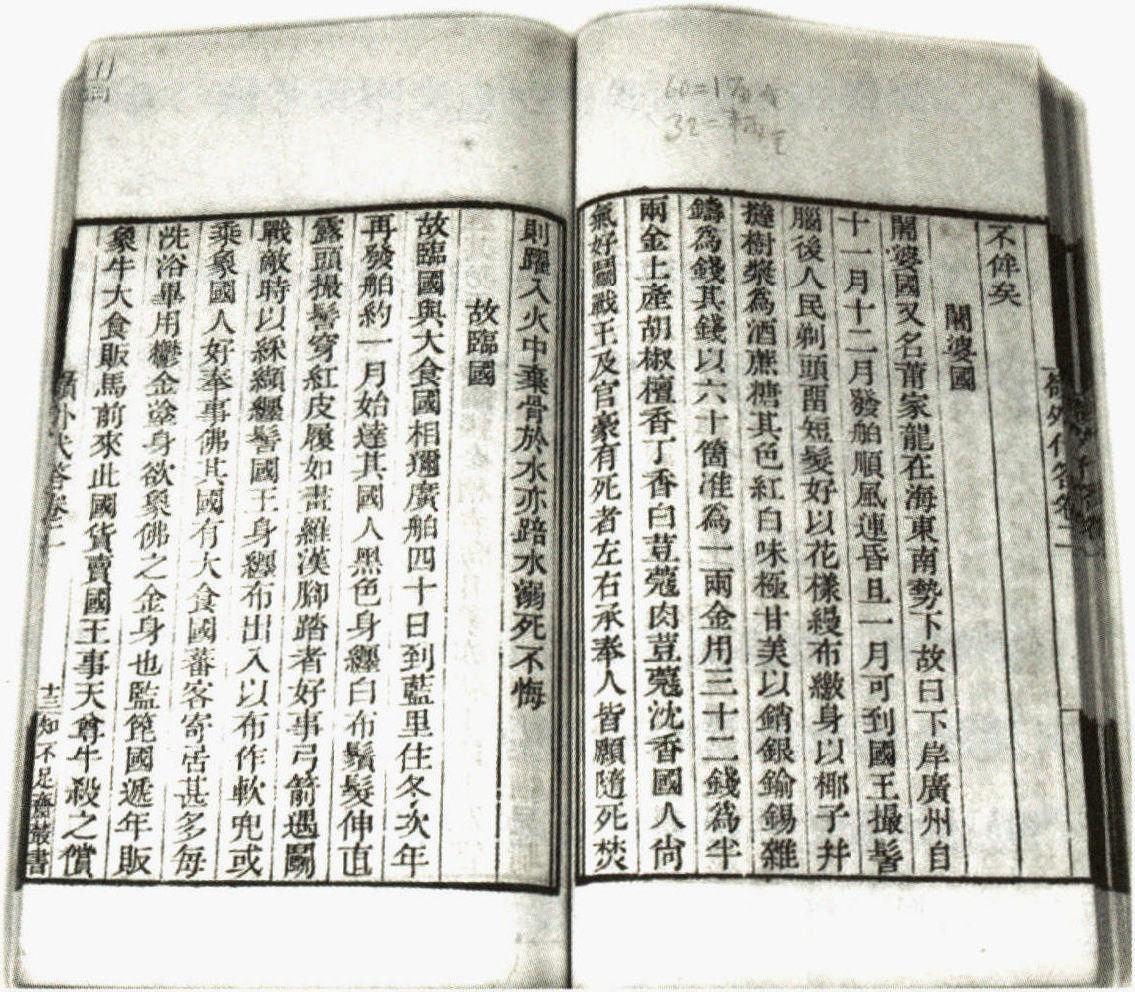 60=1
32=
不侔矣
闍婆國
闍婆國又名莆家龍在海東南勢下故曰下岸廣州自
十一月十二月發舶順風連昏旦一月可到國王撮髻
腦後人民剃頭留短髮好以花樣縵布繳身以椰子并
撻樹漿為酒蔗糖其色紅白味極甘美以銷銀鍮錫雜
鑄為錢其錢以六十箇准為一兩金用三十二錢為半
兩金土產胡椒檀香丁香白荳蔻肉荳蔻沈香國人尚
氣好鬭戰王及官豪有死者左右承奉人皆願隨死焚
則躍入火中棄骨於水亦踣水溺死不悔
故臨國
故臨國與大食國相邇廣舶四十日到藍里住冬次年
再發舶約一月始達其國人黑色身纏白布鬚髮伸直
露頭撮髻穿紅皮履如畫羅漢腳踏者好事弓箭遇鬭
戰敵時以綵纈纏髻國王身纏布出入以布作軟兜或
乘象國人好奉事佛其國有大食國蕃客寄居甚多每
洗浴畢用鬱金塗身欲象佛之金身也監篦國遞年販
象牛大食販馬前來此國貨賣國王事天尊牛殺之償
嶺外代答卷二
十三
知不足齋叢書